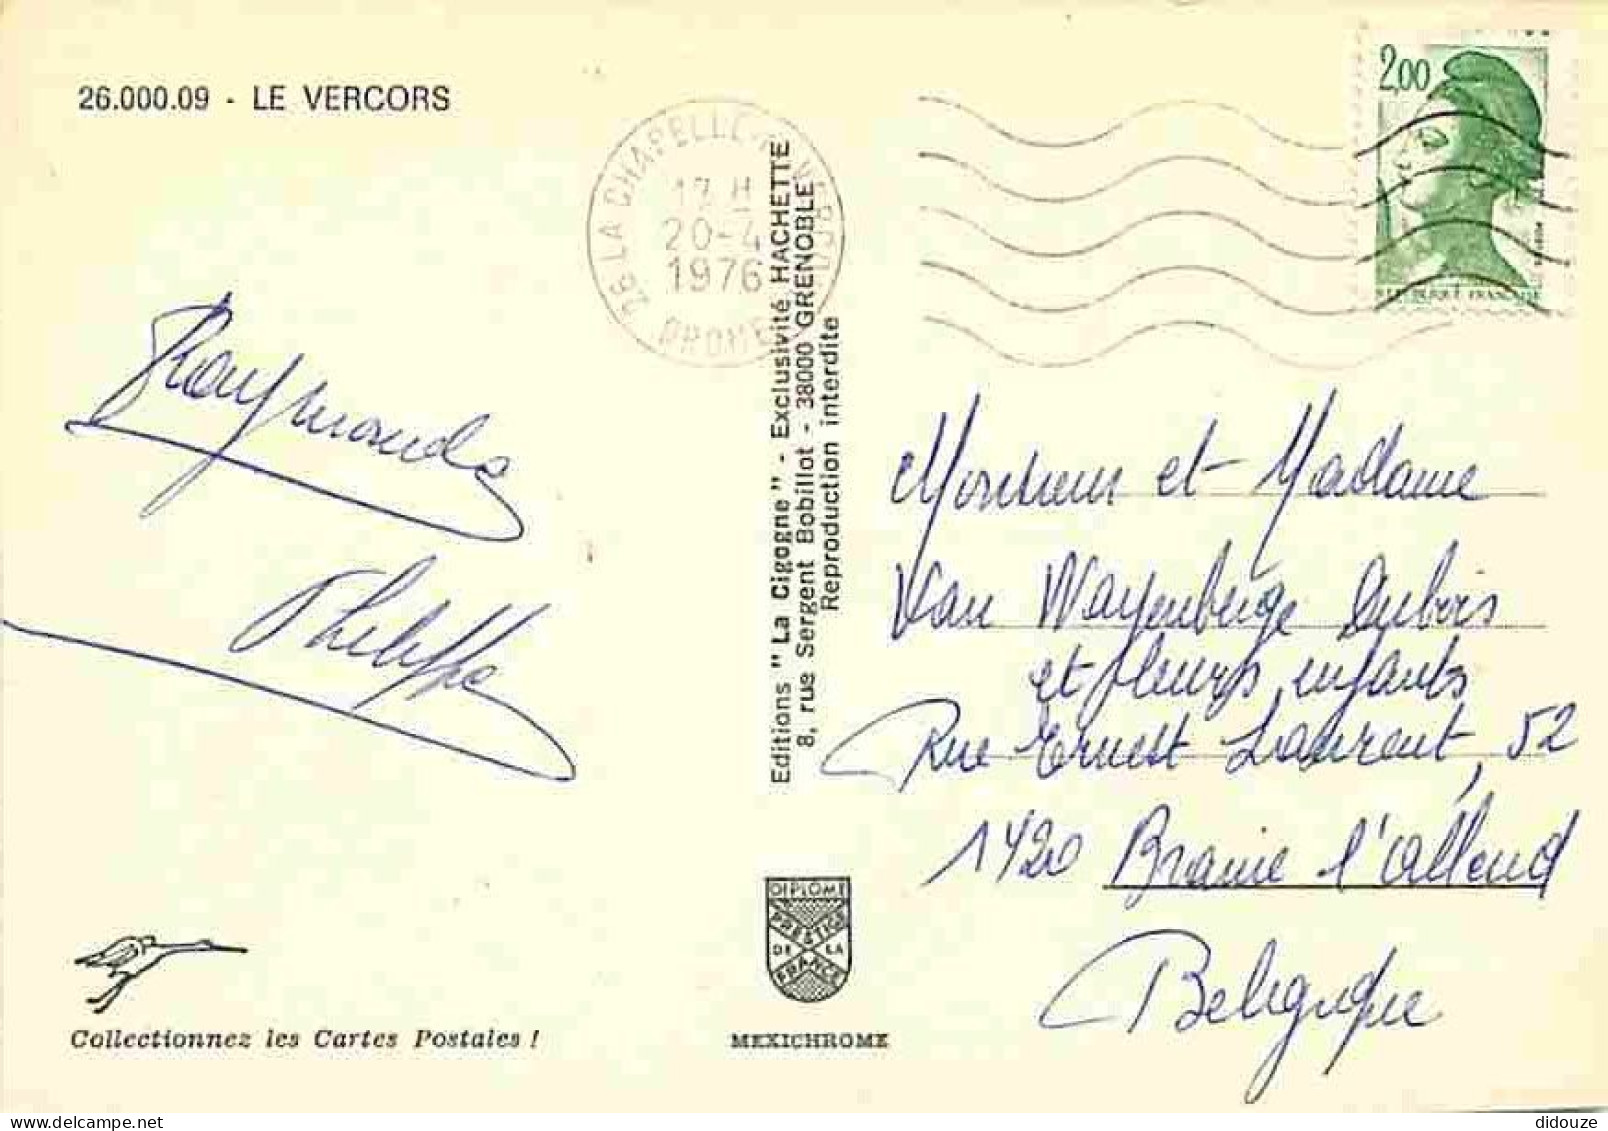 26.000.09 - LE VERCORS
26 LA CHAPELLE-EN-VERCORS
17 H
20-4
1976
DROME
2,00
REPUBLIQUE FRANÇAISE
Raymonde
Philippe
Editions "La Cigogne" - Exclusivité HACHETTE
8, rue Sergent Bobillot - 38000 GRENOBLE
Reproduction interdite
Monsieur et Madame
Van Wayenberge Dubois
et leurs enfants
Rue Ernest Laurent, 52
1420 Braine l'Alleud
Belgique
DIPLOME
PRESTIGE
DE LA
FRANCE
Collectionnez les Cartes Postales !
MEXICHROME
didouze